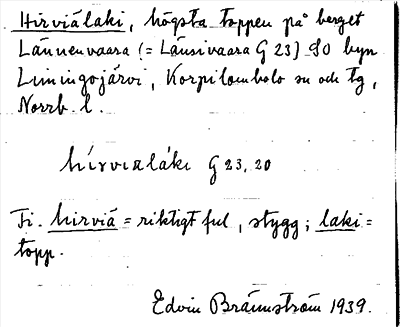 Hirviälaki, högsta toppen på berget
Lännenvaara (= Länsivaara G 23) SO byn
Liiningojärvi, Korpilombolo sn och tg,
Norrb. l.
hírviäláki G 23, 20
Fi. hirviä = riktigt ful, stygg; laki =
topp.
Edvin Brännström 1939.